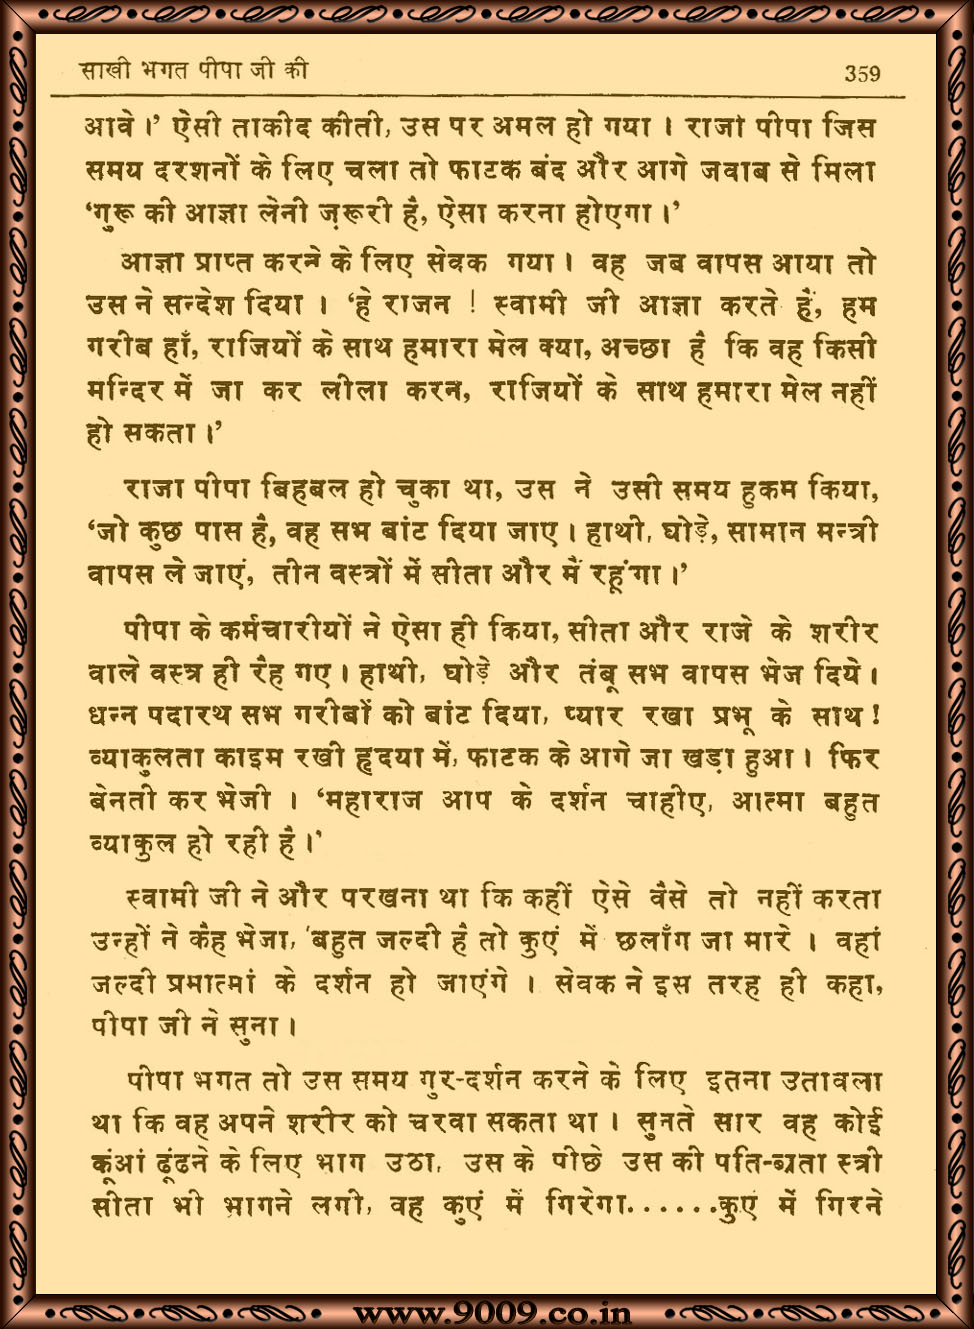 साखी भगत पीपा जी की 359
आवे।’ ऐसी ताकीद कीती, उस पर अमल हो गया । राजा पीपा जिस
समय दरशनों के लिए चला तो फाटक बंद और आगे जवाब से मिला
‘गुरू की आज्ञा लेनी ज़रूरी है, ऐसा करना होएगा।’
आज्ञा प्राप्त करने के लिए सेवक गया। वह जब वापस आया तो
उस ने सन्देश दिया । ‘हे राजन ! स्वामी जी आज्ञा करते हैं, हम
गरीब हाँ, राजियों के साथ हमारा मेल क्या, अच्छा है कि वह किसी
मन्दिर में जा कर लीला करन, राजियों के साथ हमारा मेल नहीं
हो सकता।’
राजा पीपा बिहबल हो चुका था, उस ने उसी समय हुकम किया,
‘जो कुछ पास है, वह सभ बांट दिया जाए। हाथी, घोड़े, सामान मन्त्री
वापस ले जाएं, तीन वस्त्रों में सीता और मैं रहूंगा।’
पीपा के कर्मचारीयों ने ऐसा ही किया, सीता और राजे के शरीर
वाले वस्त्र ही रैह गए। हाथी, घोड़े और तंबू सभ वापस भेज दिये।
धन्न पदारथ सभ गरीबों को बांट दिया, प्यार रखा प्रभू के साथ!
व्याकुलता काइम रखी हृदया में, फाटक के आगे जा खड़ा हुआ। फिर
बेनती कर भेजी । ‘महाराज आप के दर्शन चाहीए, आत्मा बहुत
व्याकुल हो रही है।’
स्वामी जी ने और परखना था कि कहीं ऐसे वैसे तो नहीं करता
उन्हों ने कैह भेजा, ‘बहुत जल्दी है तो कुएं में छलाँग जा मारे । वहां
जल्दी प्रमात्मां के दर्शन हो जाएंगे । सेवक ने इस तरह ही कहा,
पीपा जी ने सुना।
पीपा भगत तो उस समय गुर-दर्शन करने के लिए इतना उतावला
था कि वह अपने शरीर को चरवा सकता था। सुनते सार वह कोई
कूंआं ढूंढने के लिए भाग उठा, उस के पीछे उस की पति-ब्रता स्त्री
सीता भी भागने लगी, वह कुएं में गिरेगा......कुएं में गिरने
www.9009.co.in